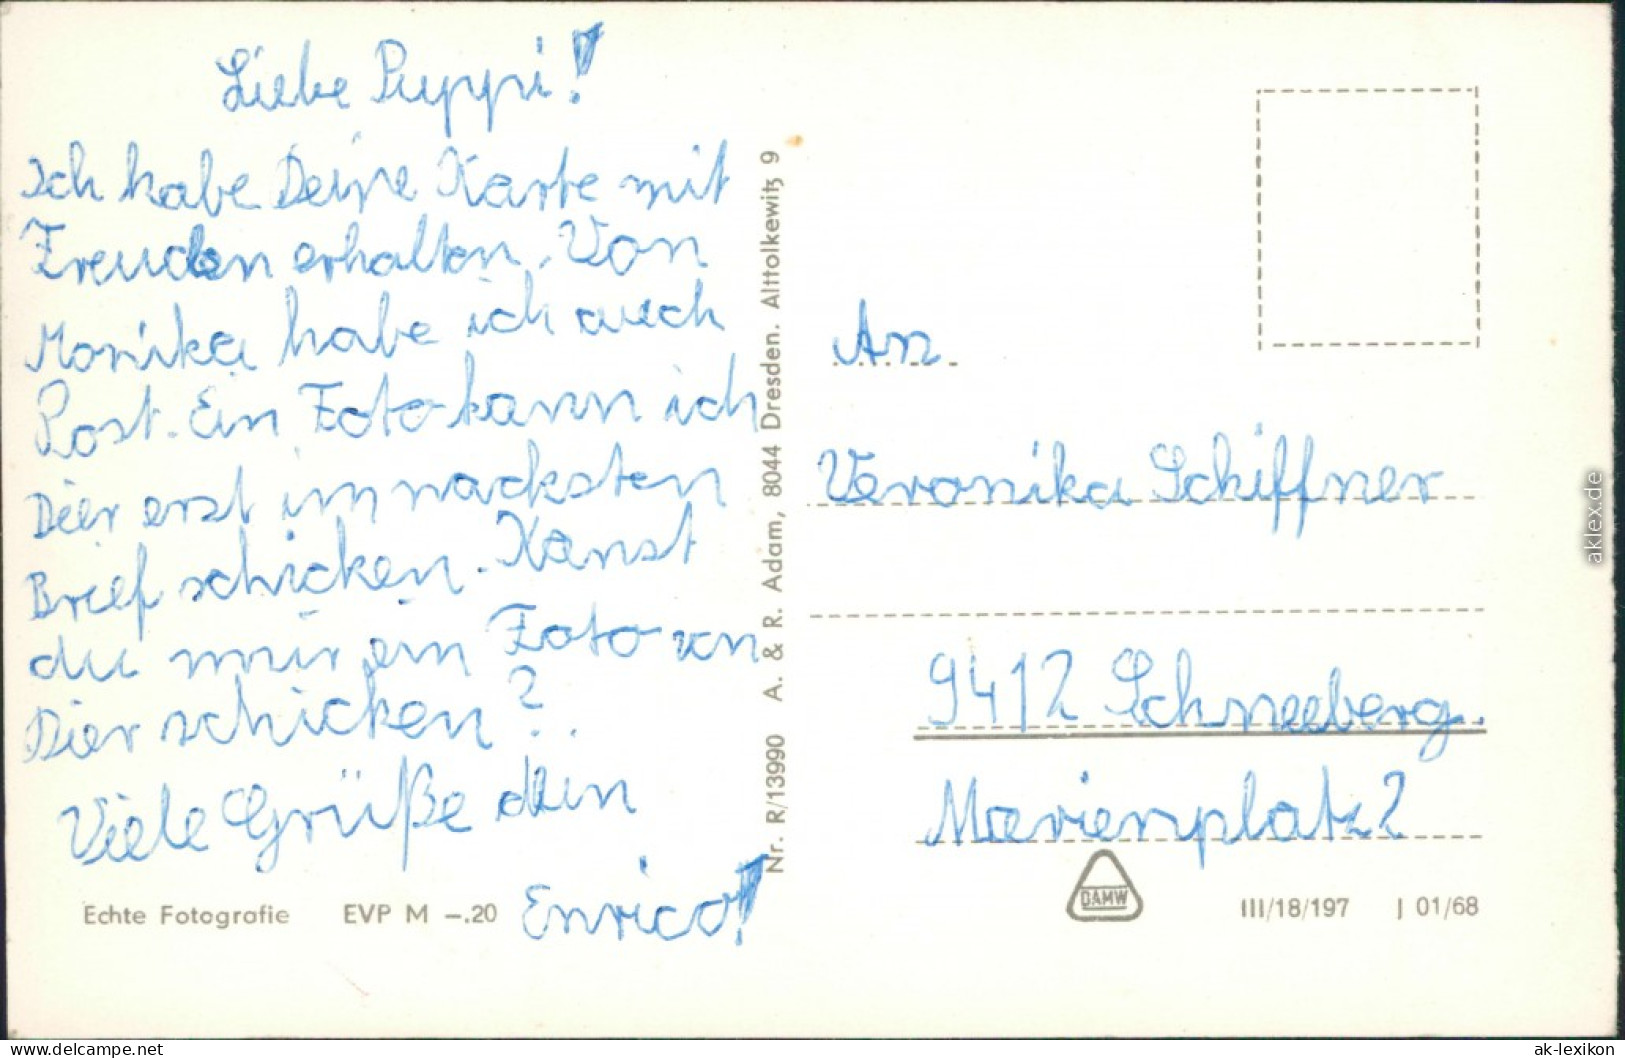 Liebe Puppi!
Ich habe Deine Karte mit
Freuden erhalten. Von
Monika habe ich auch
Post. Ein Foto kann ich
Dier erst im nacksten
Brief schicken. Kanst
du mir ein Foto von
Dier schicken?
Viele Grüße dein
Enrico!
Echte Fotografie EVP M –.20
Nr. R/13990 A. & R. Adam, 8044 Dresden. Alttolkewitz 9
An
Veronika Schiffner
9412 Schneeberg.
Marienplatz 2
DAMW
III/18/197 J 01/68
aklex.de
www.delcampe.net
ak-lexikon